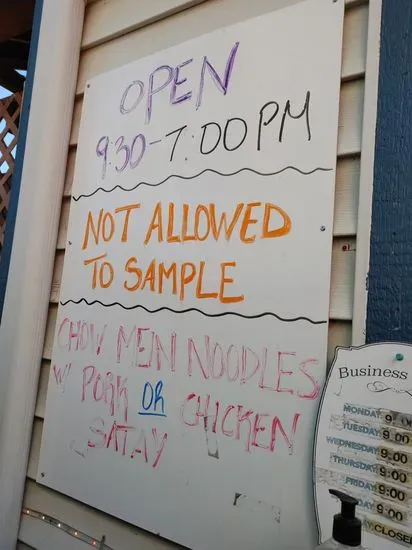 OPEN
9:30-7:00PM
NOT ALLOWED
TO SAMPLE
CHOW MEIN NOODLES
W/ PORK OR CHICKEN
SATAY
Business
MONDAY 9:00
TUESDAY 9:00
WEDNESDAY 9:00
THURSDAY 9:00
FRIDAY 9:00
9:00
CLOSE